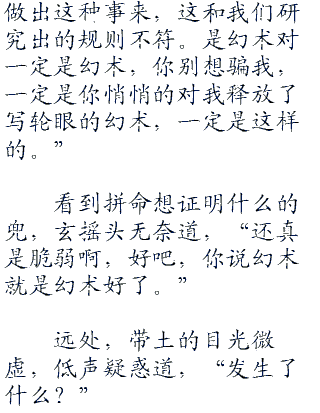 做出这种事来，这和我们研
究出的规则不符。是幻术对
一定是幻术，你别想骗我，
一定是你悄悄的对我释放了
写轮眼的幻术，一定是这样
的。”
看到拼命想证明什么的
兜，玄摇头无奈道，“还真
是脆弱啊，好吧，你说幻术
就是幻术好了。”
远处，带土的目光微
虚，低声疑惑道，“发生了
什么？”